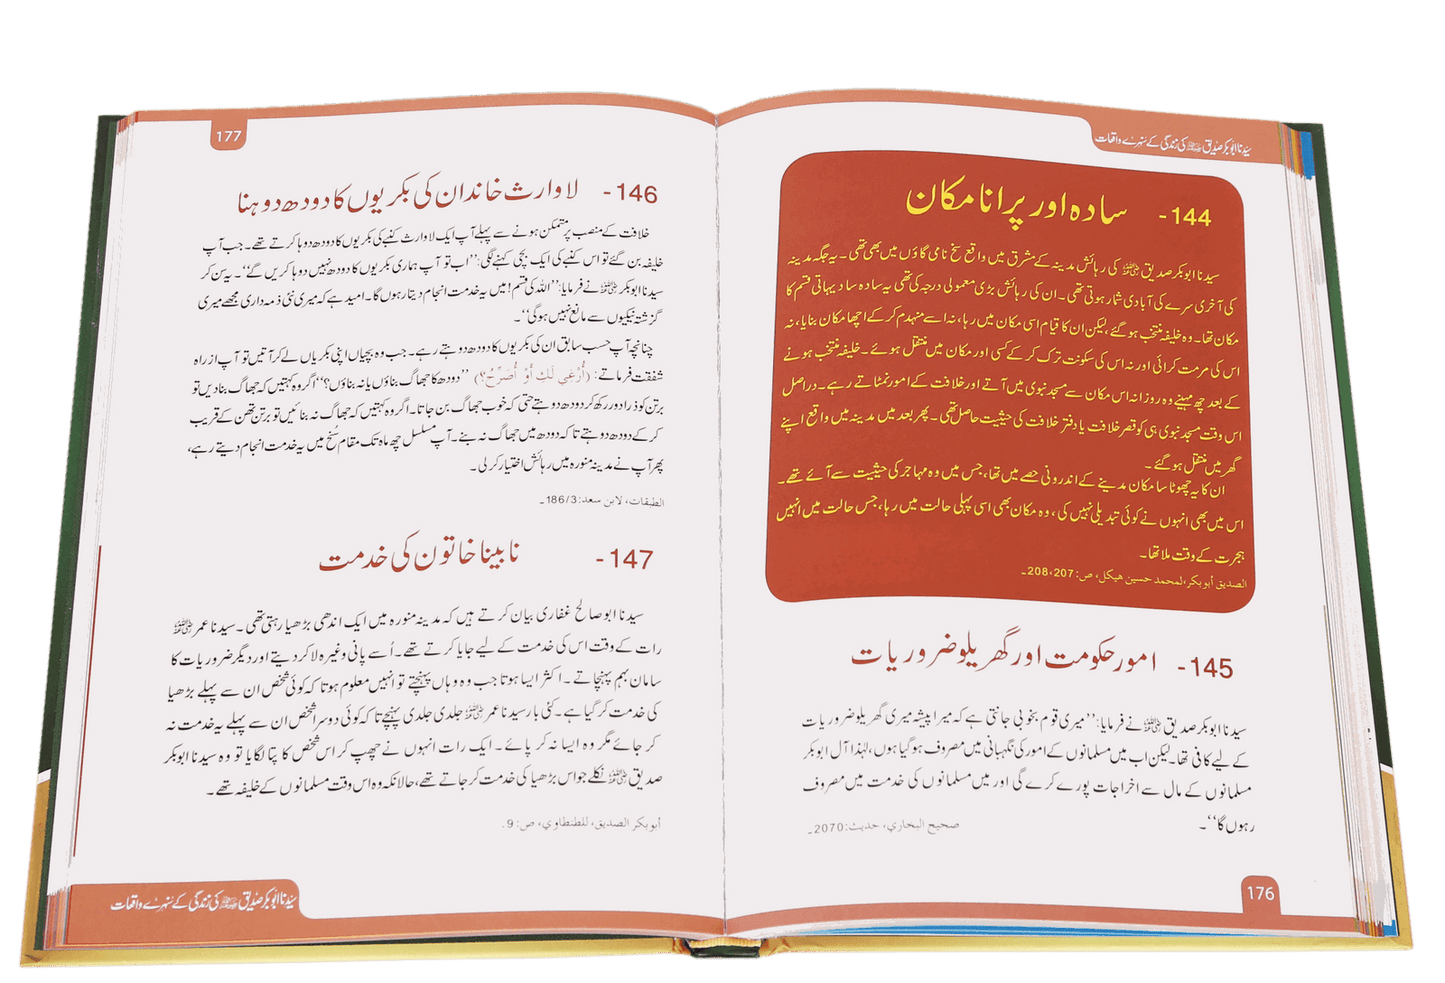 سیدنا ابوبکر صدیق ؓ کی زندگی کے سنہرے واقعات
144- سادہ اور پرانا مکان
سیدنا ابوبکر صدیق ؓ کی رہائش مدینہ کے مشرق میں واقع سخ نامی گاؤں میں بھی تھی۔ یہ جگہ مدینہ
کی آخری سرے کی آبادی شمار ہوتی تھی۔ ان کی رہائش بڑی معمولی درجہ کی تھی یہ سادہ سا دیہاتی قسم کا
مکان تھا۔ وہ خلیفہ منتخب ہو گئے، لیکن ان کا قیام اسی مکان میں رہا، نہ اسے منہدم کر کے اچھا مکان بنایا، نہ
اس کی مرمت کرائی اور نہ اس کی سکونت ترک کر کے کسی اور مکان میں منتقل ہوئے۔ خلیفہ منتخب ہونے
کے بعد چھ مہینے وہ روزانہ اس مکان سے مسجد نبوی میں آتے اور خلافت کے امور نمٹاتے رہے۔ دراصل
اس وقت مسجد نبوی ہی کو قصر خلافت یا دفتر خلافت کی حیثیت حاصل تھی۔ پھر بعد میں مدینہ میں واقع اپنے
گھر میں منتقل ہو گئے۔
ان کا یہ چھوٹا سا مکان مدینے کے اندرونی حصے میں تھا، جس میں وہ مہاجر کی حیثیت سے آئے تھے۔
اس میں بھی انہوں نے کوئی تبدیلی نہیں کی، وہ مکان بھی اسی پہلی حالت میں رہا، جس حالت میں انہیں
ہجرت کے وقت ملا تھا۔
الصدیق أبو بکر، لمحمد حسین ھیکل، ص: 208،207۔
145- امور حکومت اور گھریلو ضروریات
سیدنا ابوبکر صدیق ؓ نے فرمایا: ’’میری قوم بخوبی جانتی ہے کہ میرا پیشہ میری گھریلو ضروریات
کے لیے کافی تھا۔ لیکن اب میں مسلمانوں کے امور کی نگہبانی میں مصروف ہو گیا ہوں، لہٰذا آل ابوبکر
مسلمانوں کے مال سے اخراجات پورے کرے گی اور میں مسلمانوں کی خدمت میں مصروف
رہوں گا‘‘۔
صحیح البخاري، حدیث: 2070۔
176
177
146- لاوارث خاندان کی بکریوں کا دودھ دوہنا
خلافت کے منصب پر متمکن ہونے سے پہلے آپ ایک لاوارث کنبے کی بکریوں کا دودھ دوہا کرتے تھے۔ جب آپ
خلیفہ بن گئے تو اس کنبے کی ایک بچی کہنے لگی: ’’اب تو آپ ہماری بکریوں کا دودھ نہیں دوہا کریں گے‘‘۔ یہ سن کر
سیدنا ابوبکر ؓ نے فرمایا: ’’اللہ کی قسم! میں یہ خدمت انجام دیتا رہوں گا۔ امید ہے کہ میری نئی ذمہ داری مجھے میری
گزشتہ نیکیوں سے مانع نہیں ہوگی‘‘۔
چنانچہ آپ حسب سابق ان کی بکریوں کا دودھ دوہتے رہے۔ جب وہ بچیاں اپنی بکریاں لے کر آتیں تو آپ ازراہ
شفقت فرماتے: (أُرْغِي لَكِ أَوْ أُصَرِّحُ؟) ’’دودھ کا جھاگ بناؤں یا نہ بناؤں؟‘‘ اگر وہ کہتیں کہ جھاگ بنا دیں تو
برتن کو ذرا دور رکھ کر دودھ دوہتے حتی کہ خوب جھاگ بن جاتا۔ اگر وہ کہتیں کہ جھاگ نہ بنائیں تو برتن تھن کے قریب
کر کے دودھ دوہتے تاکہ دودھ میں جھاگ نہ بنے۔ آپ مسلسل چھ ماہ تک مقام سُخ میں یہ خدمت انجام دیتے رہے،
پھر آپ نے مدینہ منورہ میں رہائش اختیار کر لی۔
الطبقات، لابن سعد: 186/3۔
147- نابینا خاتون کی خدمت
سیدنا ابو صالح غفاری بیان کرتے ہیں کہ مدینہ منورہ میں ایک اندھی بڑھیا رہتی تھی۔ سیدنا عمر ؓ
رات کے وقت اس کی خدمت کے لیے جایا کرتے تھے۔ اُسے پانی وغیرہ لا کر دیتے اور دیگر ضروریات کا
سامان بہم پہنچاتے۔ اکثر ایسا ہوتا جب وہ وہاں پہنچتے تو انہیں معلوم ہوتا کہ کوئی شخص ان سے پہلے بڑھیا
کی خدمت کر گیا ہے۔ کئی بار سیدنا عمر ؓ جلدی جلدی پہنچے تاکہ کوئی دوسرا شخص ان سے پہلے یہ خدمت نہ
کر جائے مگر وہ ایسا نہ کر پائے۔ ایک رات انہوں نے چھپ کر اس شخص کا پتا لگایا تو وہ سیدنا ابوبکر
صدیق ؓ نکلے جو اس بڑھیا کی خدمت کر جاتے تھے، حالانکہ وہ اس وقت مسلمانوں کے خلیفہ تھے۔
أبو بکر الصدیق، للطنطاوي، ص: 9.
سیدنا ابوبکر صدیق ؓ کی زندگی کے سنہرے واقعات